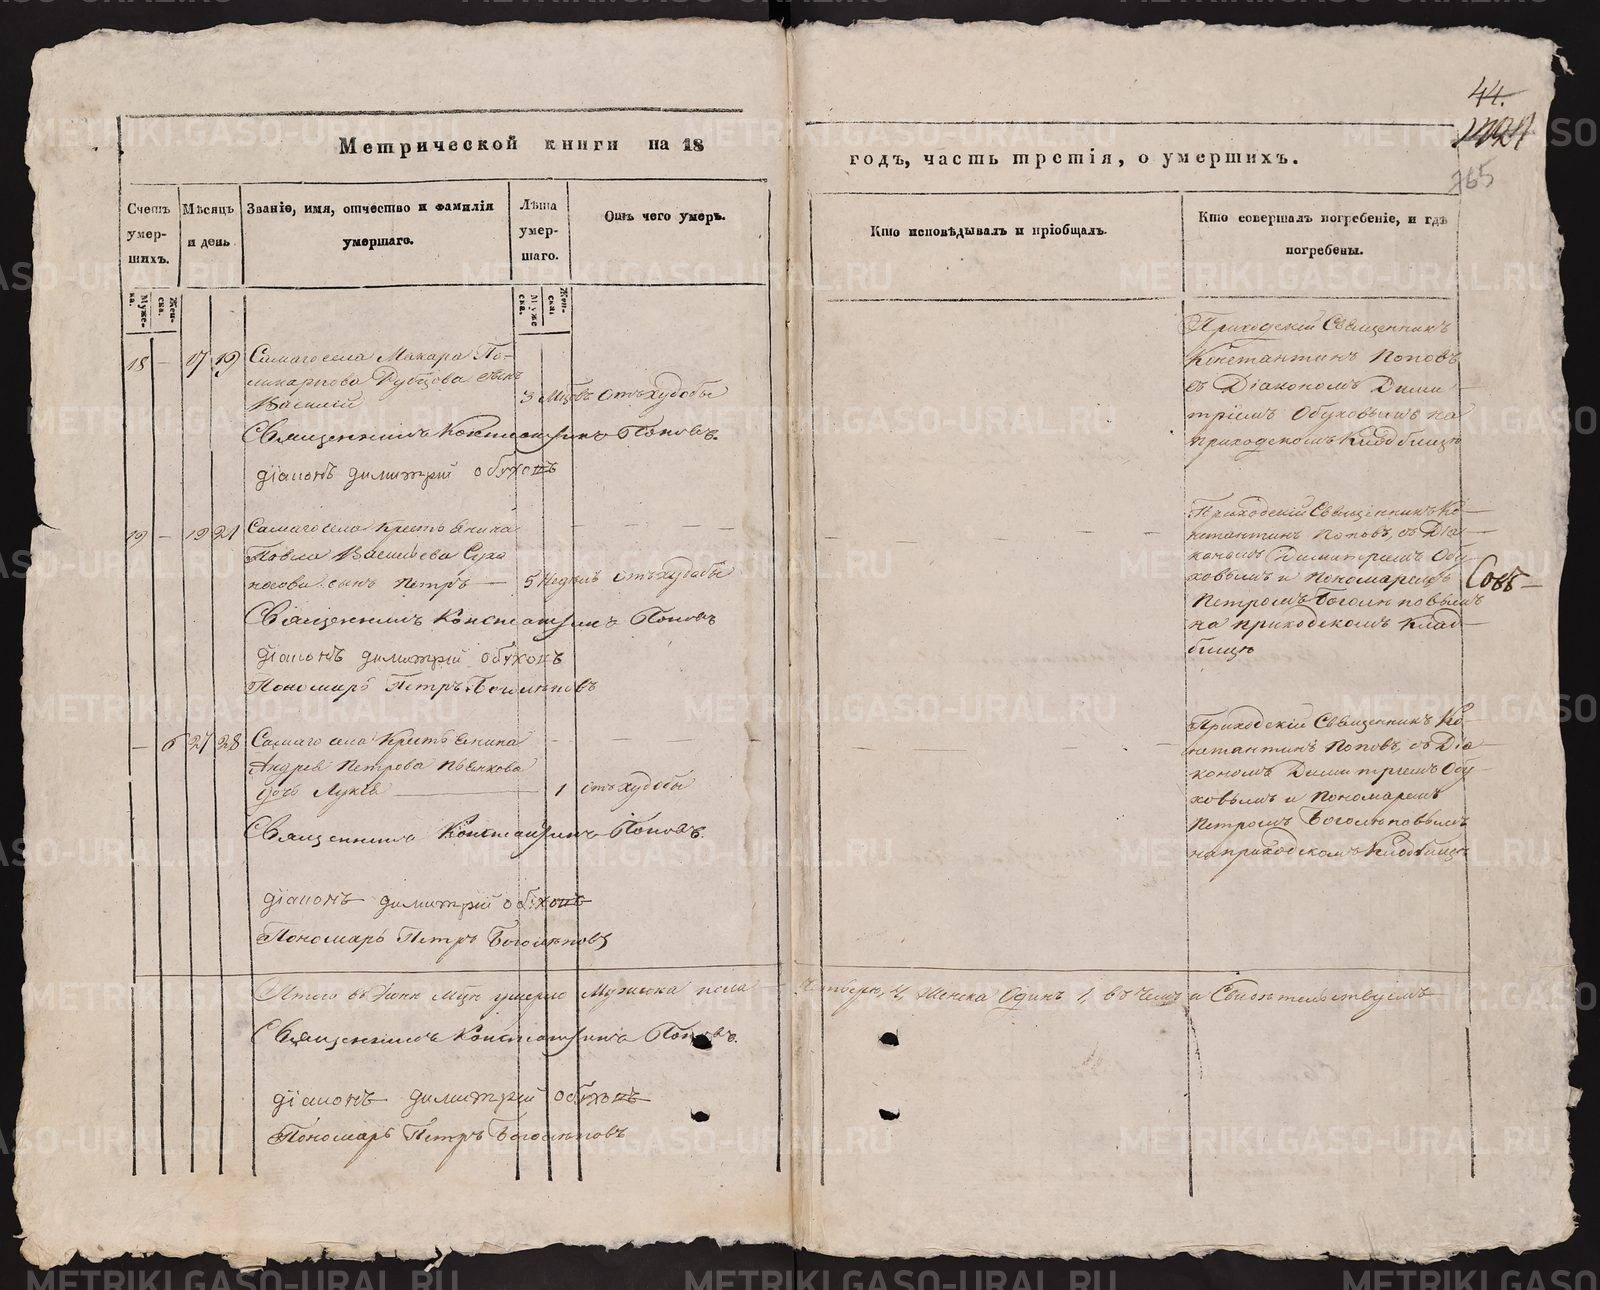 44.
265
Метрической книги на 18
годъ, часть третія, о умершихъ.
Счетъ умер-шихъ.
Мѣсяцъ и день
Званіе, имя, отчество и фамилія умершаго.
Лѣта умер-шаго.
Отъ чего умеръ.
Кто исповѣдывалъ и пріобщалъ.
Кто совершалъ погребеніе, и гдѣ погребены.
Муже-ка.
Жен-ска.
Муже ска.
Жен-ска
18 — 17 19 Самаго села Макара По-
ликарпова Рубцова сынъ
Василій 3 Мцвъ Отъ худобы
Священникъ Константинъ Поповъ.
Діаконъ Димитрій Обуховъ
Приходскій Священникъ
Константинъ Поповъ
съ Діакономъ Дими
тріемъ Обуховымъ на
приходскомъ Кладбищѣ
19 — 19 21 Самаго села Крестьянина
Павла Васильева Сухо
ногова сынъ Петръ — 5 Недѣль отъ худобы
Священникъ Константинъ Поповъ
Діаконъ Димитрій Обуховъ
Пономарь Петръ Боголѣповъ
Приходскій Священникъ Ко-
нстантинъ Поповъ, съ Діа-
кономъ Димитріемъ Обу-
ховымъ и Пономаремъ
Петромъ Боголѣповымъ
на приходскомъ Клад-
бищѣ
— 6 27 28 Самаго села Крестьянина
Андрея Петрова Пьянкова
дочь Лукія — 1 отъ худобы
Священникъ Константинъ Поповъ.
Діаконъ Димитрій Обуховъ
Пономарь Петръ Боголѣповъ
Приходскій Священникъ Ко-
нстантинъ Поповъ, съ Діа-
кономъ Димитріемъ Обу-
ховымъ и Пономаремъ
Петромъ Боголѣповымъ
на приходскомъ Кладбищѣ
Итого въ Іюнѣ Мцѣ умерло Мужеска пола Четверо, 4, Женска Одинъ 1, въ чемъ и Свидѣтельствуемъ
Священникъ Константинъ Поповъ.
Діаконъ Димитрій Обуховъ
Пономарь Петръ Боголѣповъ
METRIKI.GASO-URAL.RU